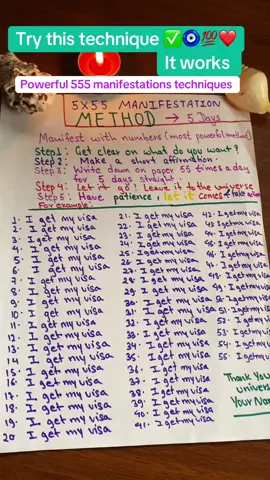 Try this technique ✅🧿💯❤️
It works
Powerful 555 manifestations techniques
5X55 MANIFESTATION
METHOD → 5 Days
Manifest with numbers (most powerful method)
Step 1: Get clear on what do you want?
Step 2: Make a short affirmation.
Step 3: Write down on paper 55 times a day
for 5 days straight.
Step 4: Let it go! Leave it to the universe
Step 5: Have patience, let it comes
For example:
1. I get my visa
2. I get my visa
3. I get my visa
4. I get my visa
5. I get my visa
6. I get my visa
7. I get my visa
8. I get my visa
9. I get my visa
10. I get my visa
11. I get my visa
12. I get my visa
13. I get my visa
14. I get my visa
15. I get my visa
16. I get my visa
17. I get my visa
18. I get my visa
19. I get my visa
20 I get my visa
21. I get my visa
22. I get my visa
23. I get my visa
24. I get my visa
25. I get my visa
26. I get my visa
27. I get my visa
28. I get my visa
29. I get my visa
30. I get my visa
31. I get my visa
32. I get my visa
33. I get my visa
34. I get my visa
35. I get my visa
36. I get my visa
37. I get my visa
38. I get my visa
39. I get my visa
40. I get my visa
41. I get my visa
42. I get my visa
43. I get my visa
44. I get my visa
45. I get my visa
46. I get my visa
47. I get my visa
48. I get my visa
49. I get my visa
50. I get my visa
51. I get my visa
52. I get my visa
53. I get my visa
54. I get my visa
55. I get my visa
Thank You
universe
Your Nam